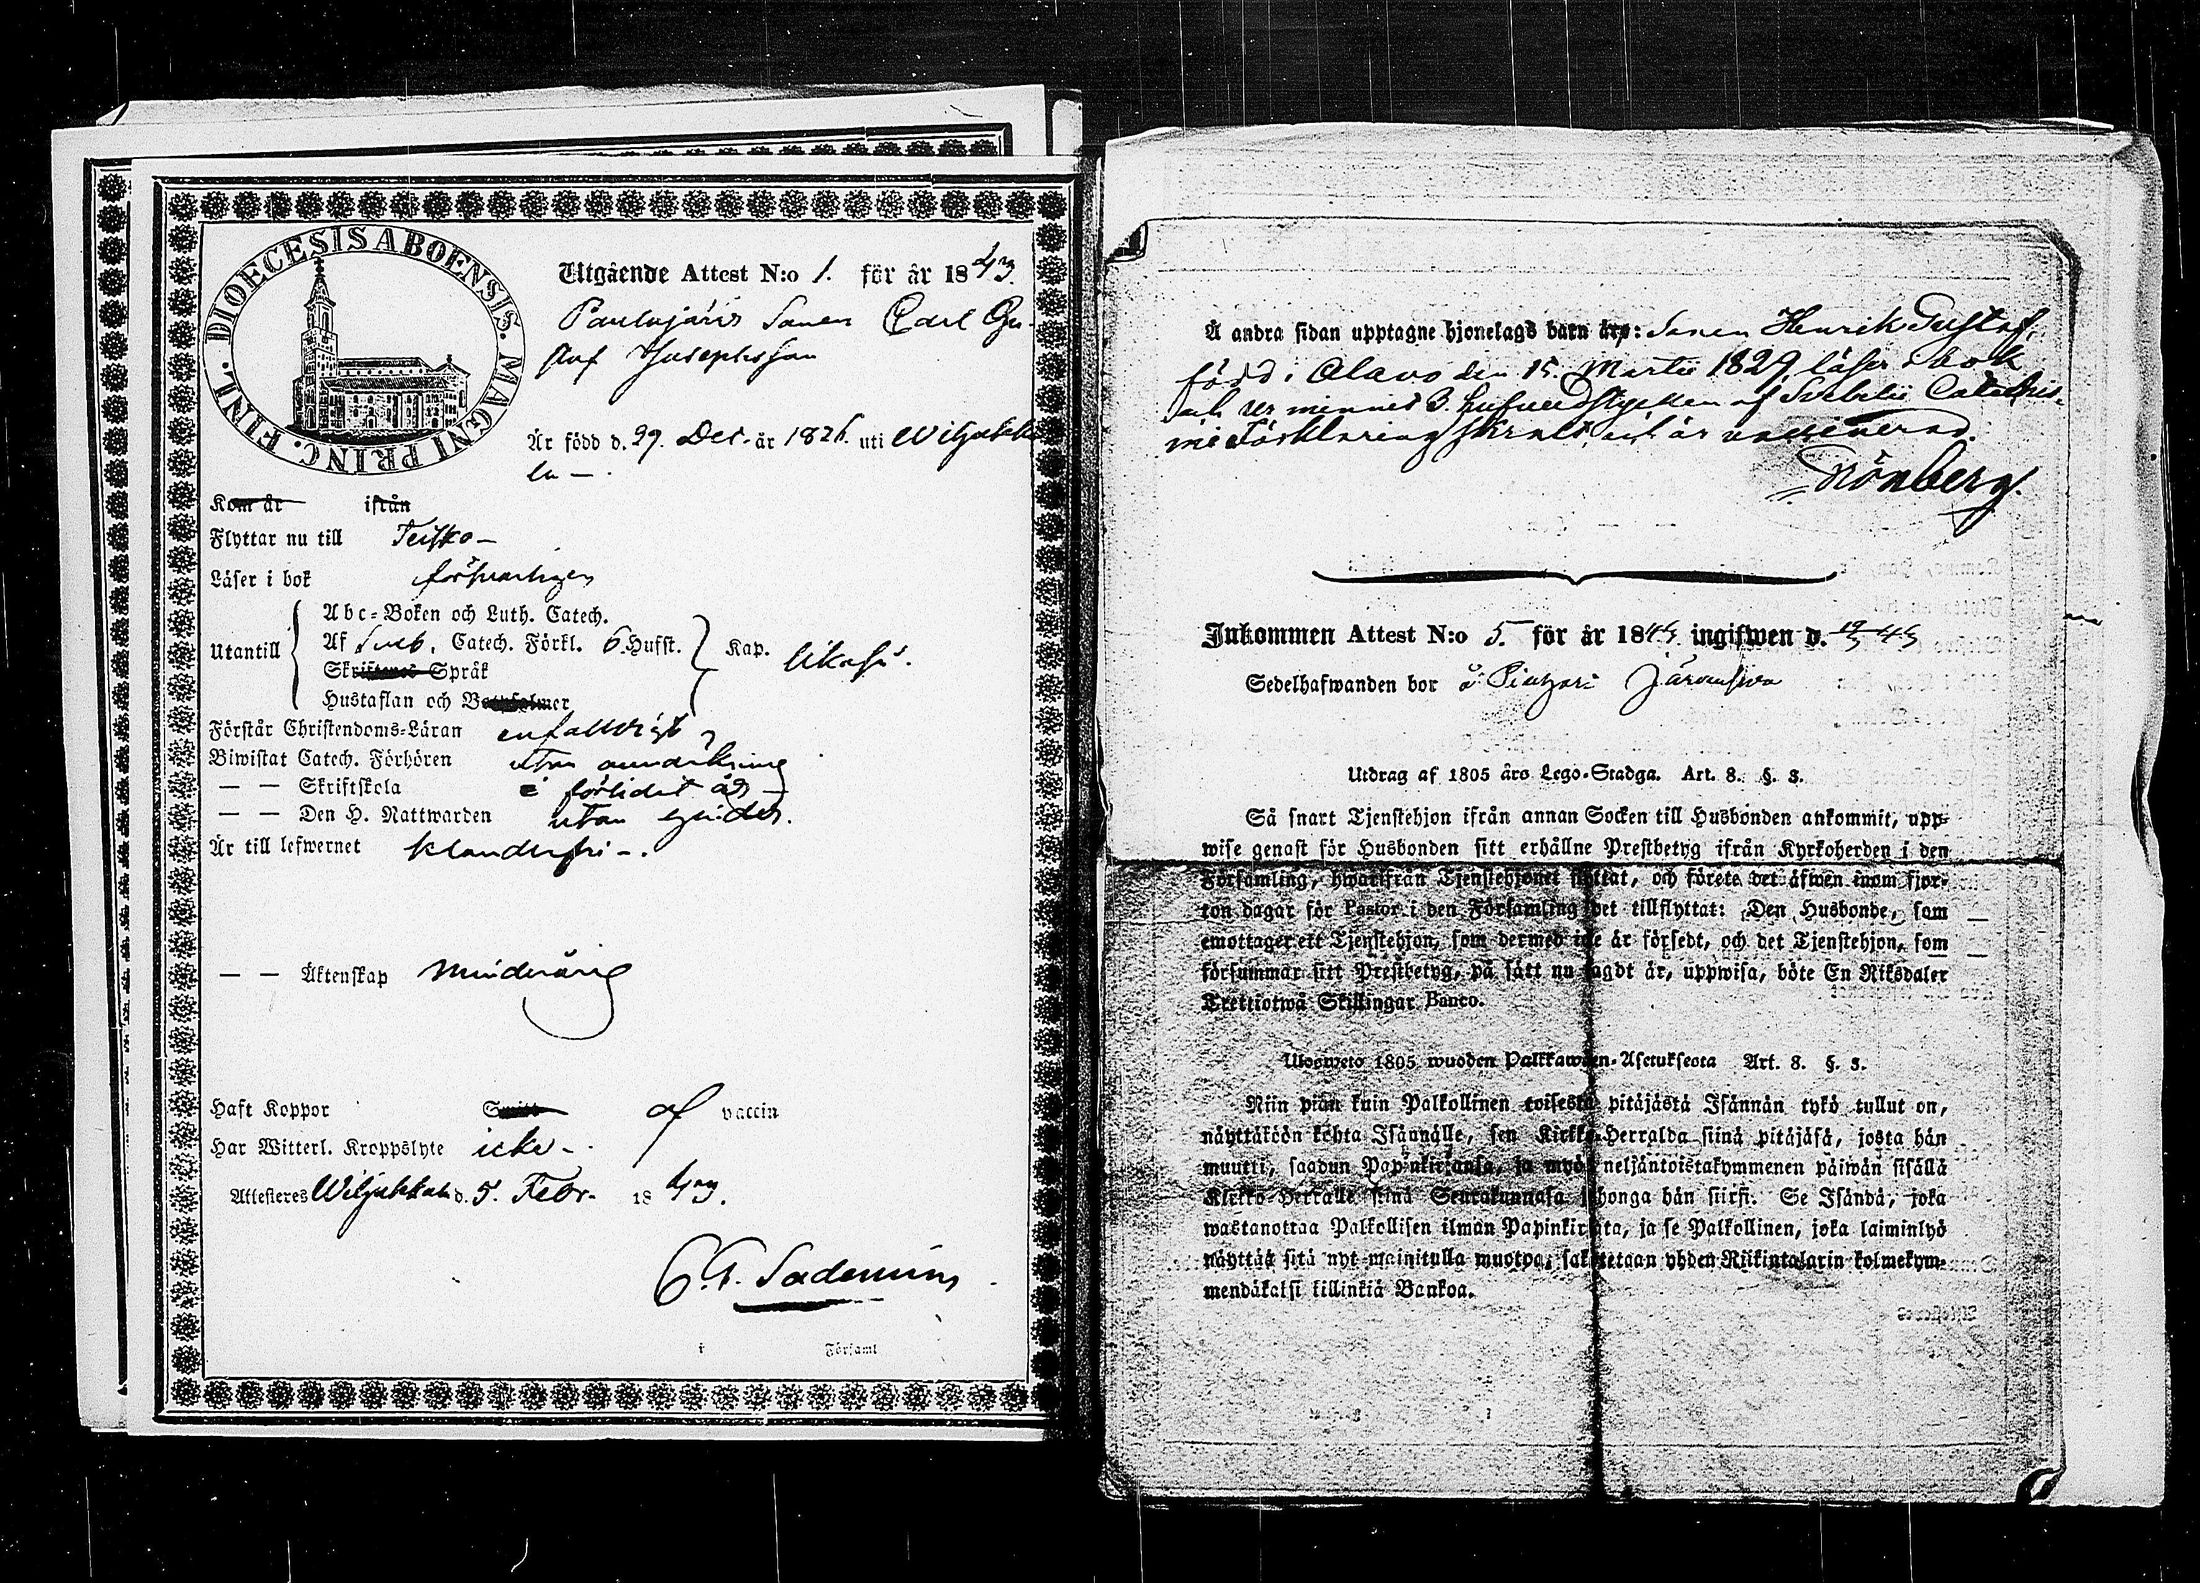 DIOECESIS ABOENSIS. MAGNI PRINC. FINL.
Utgående Attest N:o 1. för år 1843.
Paulujärvi Sonen Carl Gu-
staf Josephsson
Är född d. 29. Dec. år 1826. uti Wiljakka
la —.
Kom år ifrån
Flyttar nu till Teisko —
Läser i bok försvarligen
Abc-Boken och Luth. Catech.
Utantill Af Sveb. Catech. Förkl. 6. Hufst. Kap. likaså.
Skriftenes Språk
Hustaflan och Botpsalmer
Förstår Christendoms-Läran enfaldigt,
Biwistat Catech. Förhören utan anmärkning
— — Skriftskola i förlidet år —
— — Den H. Nattwarden utan hinder.
Är till lefwernet klanderfri —.
— — Äktenskap minderårig
Haft Koppor Smitt af vaccin
Har Witterl. Kroppslyte icke —.
Attesteres Wiljakkala d. 5. Febr. 1843.
Sadenius
i Församl
Å andra sidan upptagne hjonelags barn äro: Sonen Henrik Gustaf,
född i Alavo den 15. Martii 1829 läser i bok
och ur minnet 3. hufvudstycken af Svebelii Catechis-
mi Förklaring samt är vaccinerad.
Grönberg.
Inkommen Attest N:o 5. för år 1843 ingifwen d. 19/3 43
Sedelhafwanden bor å Järvensivu
Utdrag af 1805 års Lego-Stadga. Art. 8. §. 3.
Så snart Tjenstehjon ifrån annan Socken till Husbonden ankommit, upp-
wise genast för Husbonden sitt erhållne Prestbetyg ifrån Kyrkoherden i den
Församling, hwarifrån Tjenstehjonet flyttat, och förete det äfwen inom fjor-
ton dagar för Pastor i den Församling det tillflyttat: Den Husbonde, som
emottager ett Tjenstehjon, som dermed icke är försedt, och det Tjenstehjon, som
försummar sitt Prestbetyg, på sätt nu sagdt är, uppwisa, böte En Riksdaler
Trettiotwå Skillingar Banco.
Ulosweto 1805 wuoden Palkkawäen-Asetuksesta Art. 8. §. 3.
Niin pian kuin Palkollinen toisesta pitäjästä Isännän tykö tullut on,
näyttäköön kohta Isännälle, sen Kirkko-Herralda siinä pitäjäsä, josta hän
muutti, saadun Papinkirjansa, ja myös neljäntoistakymmenen päiwän sisällä
Kirkko-Herralle siinä Seurakunnasa johonga hän siirsi. Se Isändä, joka
wastanottaa Palkollisen ilman Papinkirjata, ja se Palkollinen, joka laiminlyö
näyttää sitä nyt mainitulla muotoa, sakotetaan yhden Riikintalarin kolmekym-
mendäkaksi killinkiä Bankoa.